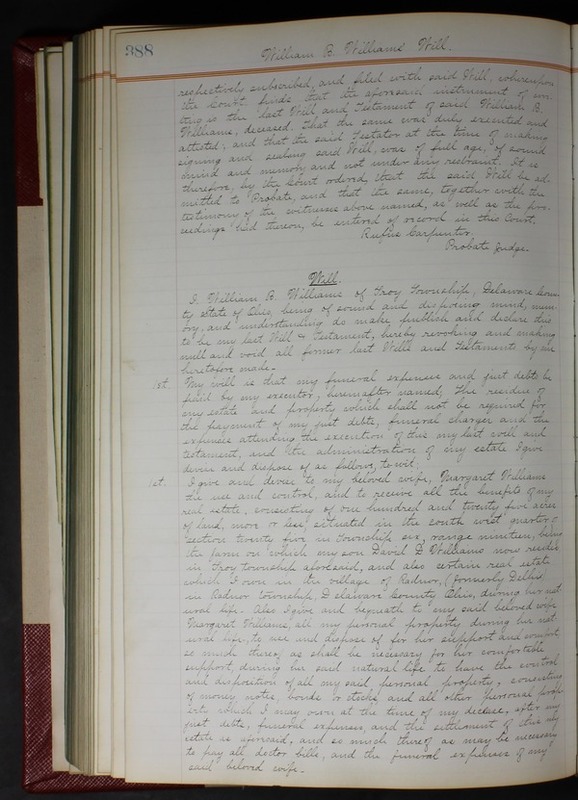 388
William B. Williams Will.
respectively subscribed, and filed with said Will, whereupon
the Court finds that the aforesaid instrument of wri-
ting is the last Will and Testament of said William B.
Williams, deceased. That the same was duly executed and
attested, and that the said Testator at the time of making
signing and sealing said Will, was of full age, of sound
mind and memory and not under any restraint. It is
therefore, by the Court ordered, that the said Will be ad-
mitted to Probate, and that the same, together with the
testimony of the witnesses above named, as well as the pro-
ceedings had thereon, be entered of record in this Court.
Rufus Carpenter.
Probate Judge.
Will.
I, William B. Williams of Troy Township, Delaware Coun-
ty state of Ohio, being of sound and disposing mind, mem-
ory, and understanding do make publish and declare this
to be my last Will & Testament, hereby revoking and making
null and void all former last Wills and Testaments by me
heretofore made.
1st. My will is that my funeral expenses and just debts be
paid by my executor, hereinafter named; The residue of
my estate and property which shall not be required for
the payment of my just debts, funeral charges and the
expenses attending the execution of this my last will and
testament, and the administration of my estate I give
devise and dispose of as follows, to wit;
1st. I give and devise to my beloved wife, Margaret Williams
the use and control, and to receive all the benefits of my
real estate, consisting of one hundred and twenty five acres
of land, more or less, situated in the south west quarter of
section twenty five in Township six, range nineteen, being
the farm on which my son David D Williams now resides
in Troy township aforesaid, and also certain real estate
which I own in the village of Radnor, (formerly Delhi,
in Radnor Township, Delaware County Ohio, during her nat-
ural life. Also I give and bequeath to my said beloved wife
Margaret Williams, all my personal property during her nat-
ural life, to use and dispose of for her support and comfort
so much thereof as shall be necessary for her comfortable
support, during her said natural life to have the control
and disposition of all my said personal property, consisting
of money notes, bonds or stocks, and all other personal prop-
erty which I may own at the time of my decease, after my
just debts, funeral expenses, and the settlement of this my
estate as aforesaid, and so much thereof as may be necessary
to pay all doctor bills, and the funeral expenses of my
said beloved wife.